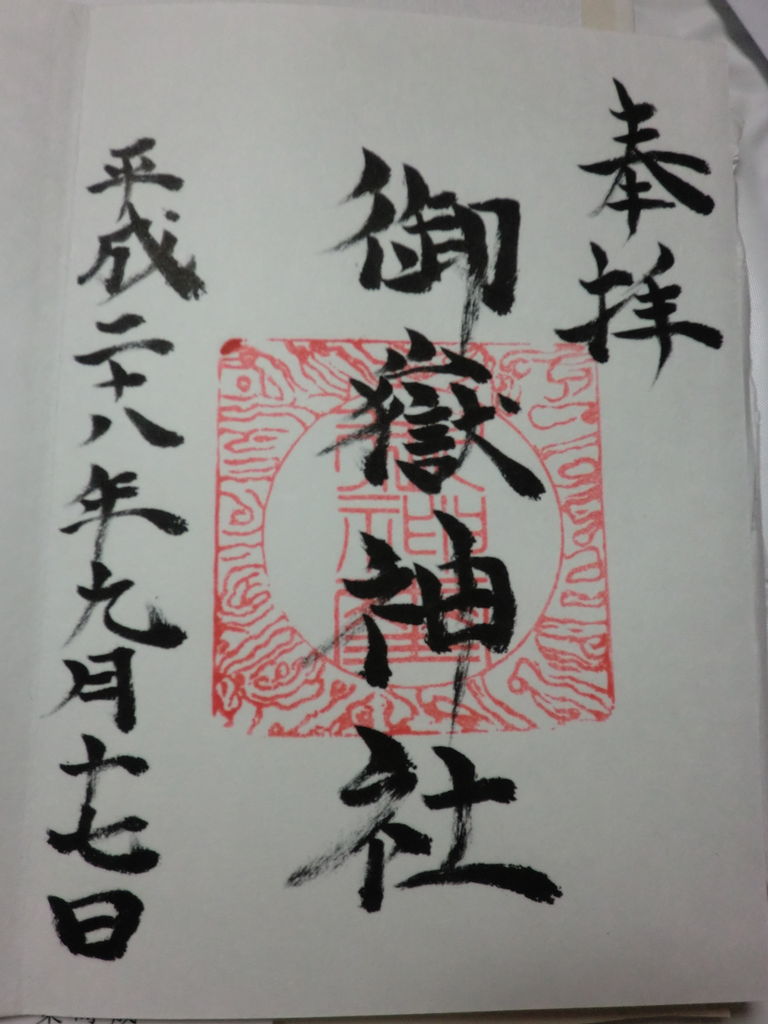 奉拝
御嶽神社
平成二十八年九月十七日